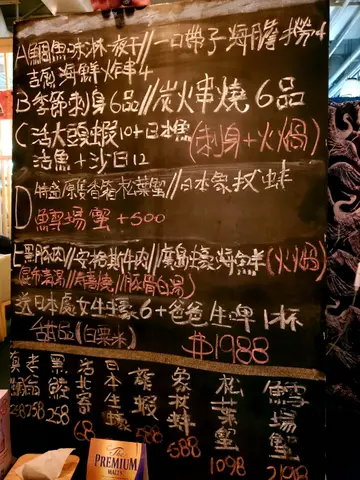 A 鯛魚冰淋一夜干//一口帶子海膽撈4
吉列海鮮炸串4
B 季節刺身6品//炭火串燒6品
C 活大頭蝦10+日本魚(刺身+火鍋)
活魚+沙白12
D 特盛原隻香箱松葉蟹//日本象拔蚌
鱈場蟹+500
E 黑豚肉//安格斯牛肉//廣島蠔海鮮(火鍋)
(昆布清湯//壽喜燒//豚骨白湯)
送日本處女生蠔6+爸爸生啤1杯
甜品(白粟米)
$1988
黑鮑 258
活北寄 68
日本生蠔
龍蝦 68
象拔蚌 588
松葉蟹 1098
鱈場蟹 2198
The
PREMIUM
MALT'S